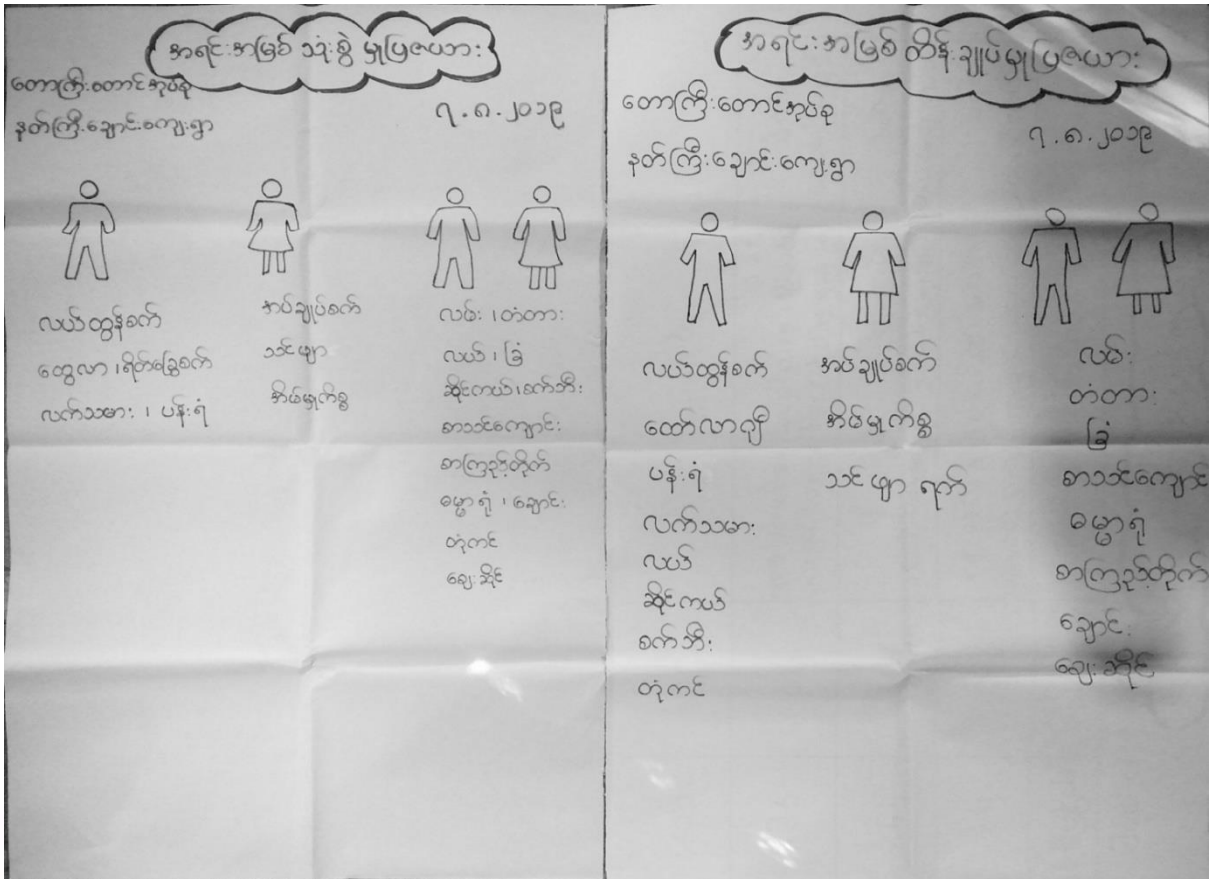 အရင်းအမြစ် သုံးစွဲ မှုပြဇယား
တောကြီးတောင်အုပ်စု
နတ်ကြီးချောင်းကျေးရွာ
၇.၈.၂၀၁၉
လယ်ထွန်စက်
ထွေလာ၊ရိတ်ခြွေစက်
လက်သမား ၊ ပန်းရံ
အပ်ချုပ်စက်
သင်ဖျာ
အိမ်မှုကိစ္စ
လမ်း ၊တံတား
လယ် ၊ ခြံ
ဆိုင်ကယ်၊စက်ဘီး
စာသင်ကျောင်း
စာကြည့်တိုက်
ဓမ္မာရုံ ၊ ချောင်း
တုံကင်
ဈေးဆိုင်
အရင်းအမြစ် ထိန်းချုပ်မှုပြဇယား
တောကြီးတောင်အုပ်စု
နတ်ကြီးချောင်းကျေးရွာ
၇.၈.၂၀၁၉
လယ်ထွန်စက်
ထော်လာဂျီ
ပန်းရံ
လက်သမား
လယ်
ဆိုင်ကယ်
စက်ဘီး
တုံကင်
အပ်ချုပ်စက်
အိမ်မှုကိစ္စ
သင်ဖျာ ရက်
လမ်း
တံတား
ခြံ
စာသင်ကျောင်း
ဓမ္မာရုံ
စာကြည့်တိုက်
ချောင်း
ဈေးဆိုင်